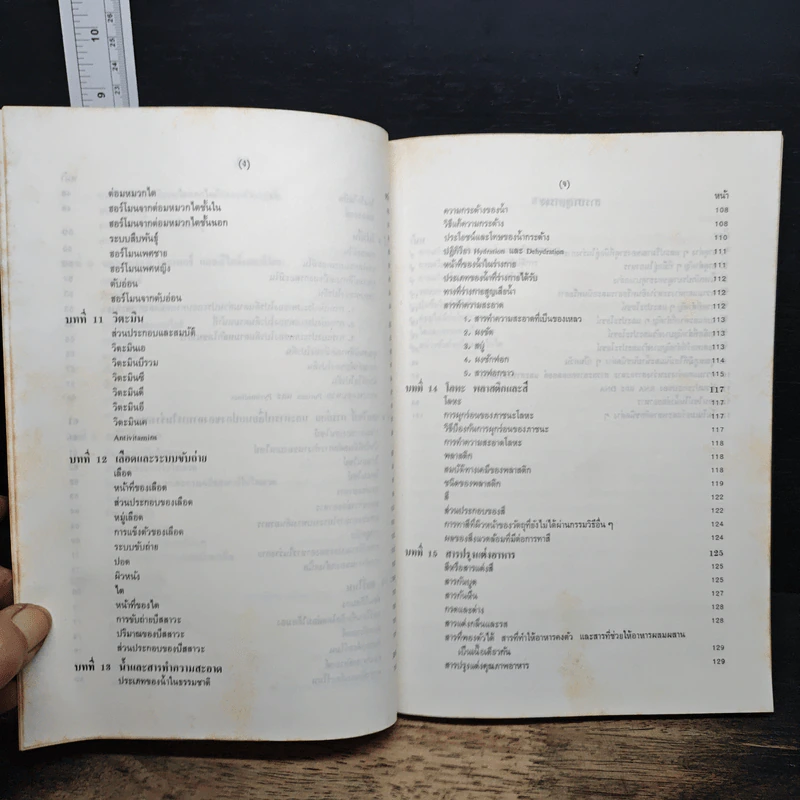 (ง)
ต่อมหมวกไต
ฮอร์โมนจากต่อมหมวกไตชั้นใน
ฮอร์โมนจากต่อมหมวกไตชั้นนอก
ระบบสืบพันธุ์
ฮอร์โมนเพศชาย
ฮอร์โมนเพศหญิง
ตับอ่อน
ฮอร์โมนจากตับอ่อน
บทที่ 11 วิตะมิน
ส่วนประกอบและสมบัติ
วิตะมินเอ
วิตะมินบีรวม
วิตะมินซี
วิตะมินดี
วิตะมินอี
วิตะมินเค
Antivitamins
บทที่ 12 เลือดและระบบขับถ่าย
เลือด
หน้าที่ของเลือด
ส่วนประกอบของเลือด
หมู่เลือด
การแข็งตัวของเลือด
ระบบขับถ่าย
ปอด
ผิวหนัง
ไต
หน้าที่ของไต
การขับถ่ายปัสสาวะ
ปริมาณของปัสสาวะ
ส่วนประกอบของปัสสาวะ
บทที่ 13 น้ำและสารทำความสะอาด
ประเภทของน้ำในธรรมชาติ
(จ)
หน้า
ความกระด้างของน้ำ 108
วิธีแก้ความกระด้าง 108
ประโยชน์และโทษของน้ำกระด้าง 110
ปฏิกิริยา Hydration และ Dehydration 111
หน้าที่ของน้ำในร่างกาย 111
ประเภทของน้ำที่ร่างกายได้รับ 112
ทางที่ร่างกายสูญเสียน้ำ 112
สารทำความสะอาด 112
1. สารทำความสะอาดที่เป็นของเหลว 113
2. ผงขัด 113
3. สบู่ 113
4. ผงซักฟอก 114
5. สารฟอกขาว 115
บทที่ 14 โลหะ พลาสติกและสี 117
โลหะ 117
การผุกร่อนของภาชนะโลหะ 117
วิธีป้องกันการผุกร่อนของภาชนะ 117
การทำความสะอาดโลหะ 118
พลาสติก 118
สมบัติทางเคมีของพลาสติก 118
ชนิดของพลาสติก 118
สี 122
ส่วนประกอบของสี 122
การทาสีที่ผิวหน้าของวัตถุที่ยังไม่ได้ผ่านกรรมวิธีอื่น ๆ 124
ผลของสิ่งแวดล้อมที่มีต่อการทาสี 124
บทที่ 15 สารปรุงแต่งอาหาร 125
สีหรือสารแต่งสี 125
สารกันบูด 125
สารกันหืน 127
กรดและด่าง 128
สารแต่งกลิ่นและรส 128
สารที่พองตัวได้ สารที่ทำให้อาหารคงตัว และสารที่ช่วยให้อาหารผสมผสาน
เป็นเนื้อเดียวกัน 129
สารปรุงแต่งคุณภาพอาหาร 129
9
10
23
24
25
26